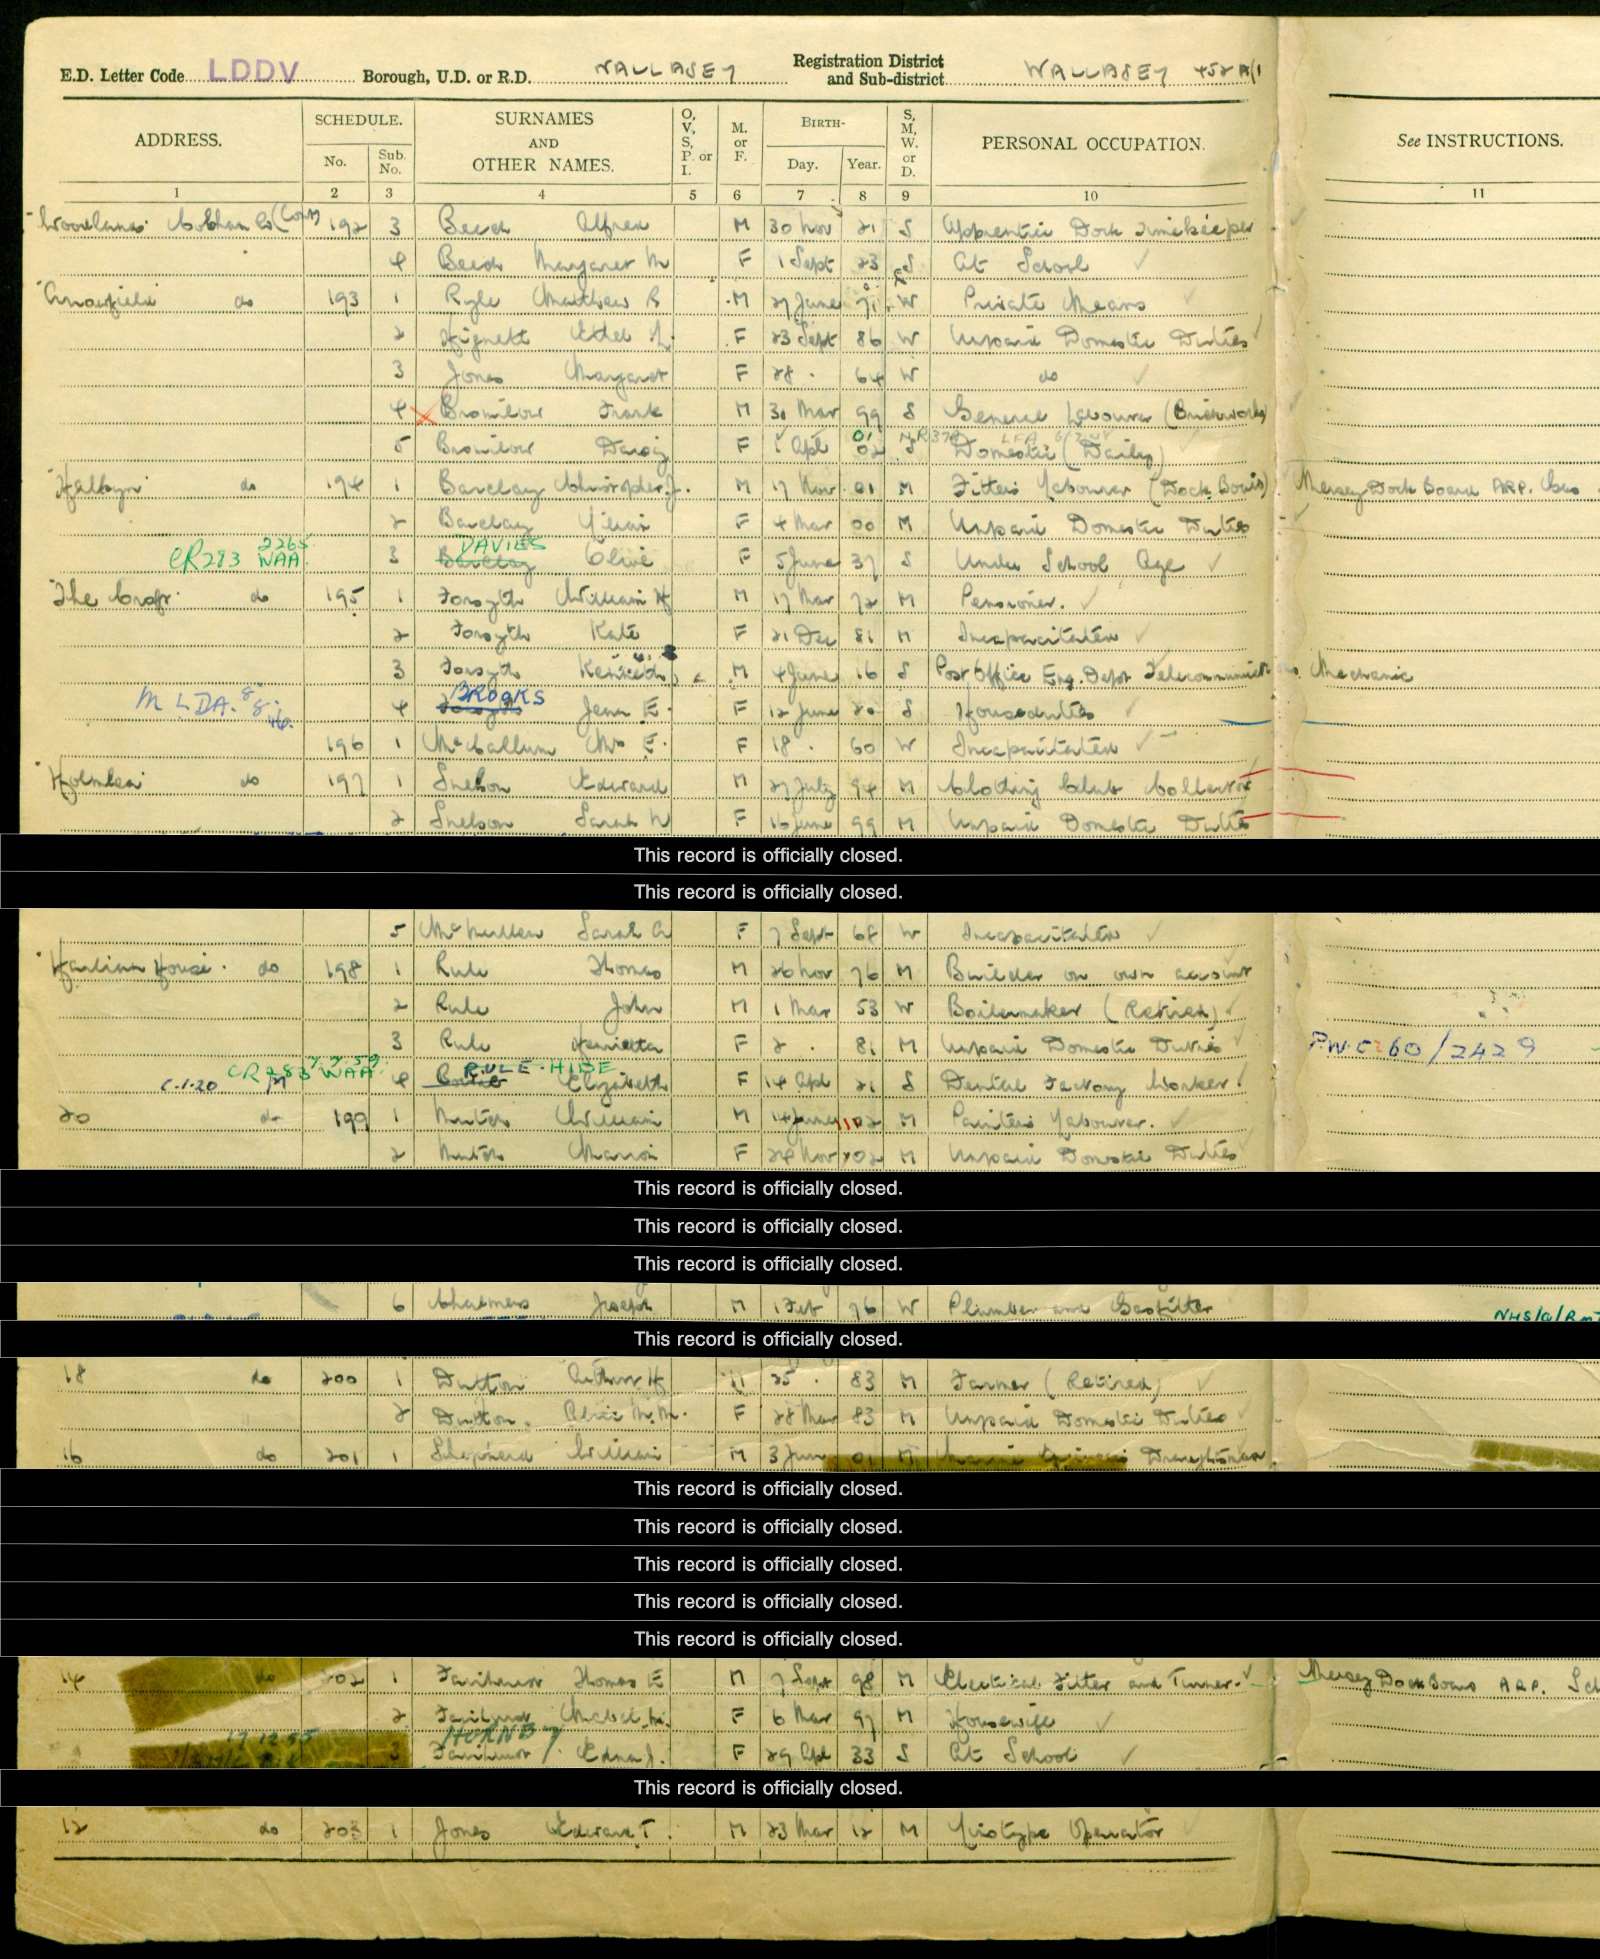 E.D. Letter Code LDDV Borough, U.D. or R.D. WALLASEY Registration District and Sub-district WALLASEY 452
ADDRESS. SCHEDULE. No. Sub. No. SURNAMES AND OTHER NAMES. O, V, S, P. or I. M. or F. BIRTH- Day. Year. S, M, W. or D. PERSONAL OCCUPATION. See INSTRUCTIONS.
1 2 3 4 5 6 7 8 9 10 11
(Cont) 192 3 Beech Alfred M 30 Nov 21 S Apprentice Dock Timekeeper
4 Beech Margaret M F 1 Sept 23 S At School
do 193 1 Ryle Matthew R M 27 June 71 W Private Means
2 Hignett Ethel F 23 Sept 86 W Unpaid Domestic Duties
3 Jones Margaret F 28 " 64 W do
4 Bromilow Frank M 30 Mar 99 S General Labourer (Brickworks)
5 Bromilow Daisy F 1 Apl 02 01 S Domestic (Daily)
"Halkyn" do 194 1 Barclay Christopher J. M 17 Nov 01 M Fitters Labourer (Dock Board) Mersey Dock Board ARP.
2 Barclay Lilian F 4 Mar 00 M Unpaid Domestic Duties
CR283 2265 NAA 3 Barclay DAVIES Olive F 5 June 37 S Under School Age
"The Croft" do 195 1 Forsyth William H M 17 Mar 72 M Pensioner.
2 Forsyth Kate F 21 Dec 81 M Incapacitated
3 Forsyth Kenneth M 4 June 16 S Post Office Eng. Dept Telecommunications Mechanic
M LDA. 8.8.46. 4 Forsyth BROOKS Jean E. F 12 June 20 S Houseduties
196 1 McCallum Mrs E. F 18 " 60 W Incapacitated
"Holmlea" do 197 1 Snelson Edward M 27 July 94 M Clothing Club Collector
2 Snelson Sarah F 16 June 99 M Unpaid Domestic Duties
This record is officially closed.
This record is officially closed.
5 McMullen Sarah A F 7 Sept 68 W Incapacitated
House. do 198 1 Rule Thomas M 26 Nov 76 M Builder on own account
2 Rule John M 1 Mar 53 W Boilermaker (Retired)
3 Rule Henrietta F 2 " 81 M Unpaid Domestic Duties PW C260/2429
CR283 WAA C.1.20 M 4 RULE-HIDE Elizabeth F 14 Apl 21 S Dental Factory Worker.
20 do 199 1 William M 14 June 02 M Painters Labourer.
2 Marion F 24 Nov 02 M Unpaid Domestic Duties
This record is officially closed.
This record is officially closed.
This record is officially closed.
6 Chalmers Joseph M 1 Feb 76 W Plumber and Gasfitter NHS/
This record is officially closed.
18 do 200 1 Dutton Arthur H M 25 " 83 M Farmer (Retired)
2 Dutton. Alice M.M. F 28 Mar 83 M Unpaid Domestic Duties
16 do 201 1 Shepherd William M 3 01 M Marine Draughtsman
This record is officially closed.
This record is officially closed.
This record is officially closed.
This record is officially closed.
This record is officially closed.
14 do 202 1 Fairhurst Thomas E M 7 Sept 98 M Electrical Fitter and Turner. Mersey Dock Board A.R.P.
2 Fairhurst Mabel F 6 Mar 97 M Housewife
17.12.55 3 Fairhurst HORNBY Edna J. F 29 Apl 33 S At School
This record is officially closed.
12 do 203 1 Jones Edward T. M 23 Mar 12 M Linotype Operator